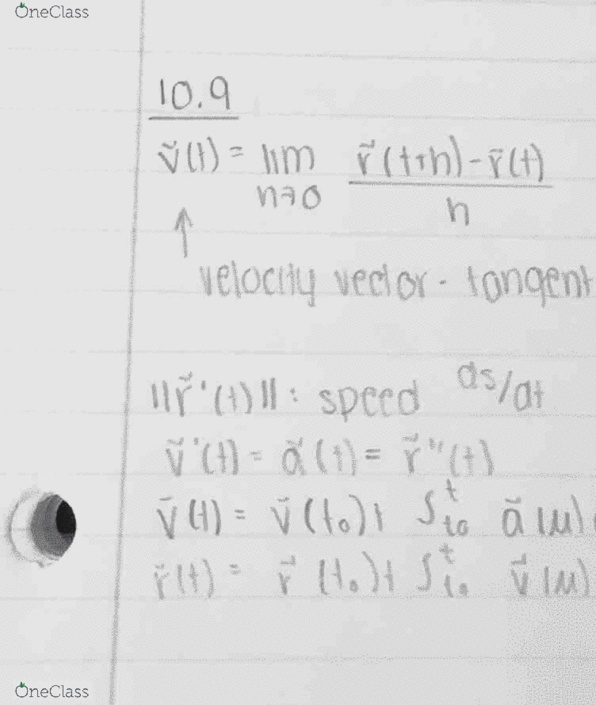 OneClass
10.9
v⃗(t) = lim h→0 r⃗(t+h) - r⃗(t) / h
↑
velocity vector - tangent
||r⃗'(t)|| : speed ds/dt
v⃗'(t) = a⃗(t) = r⃗''(t)
v⃗(t) = v⃗(t₀) + ∫ₜ₀ᵗ a⃗(u)
r⃗(t) = r⃗(t₀) + ∫ₜ₀ᵗ v⃗(u)
OneClass